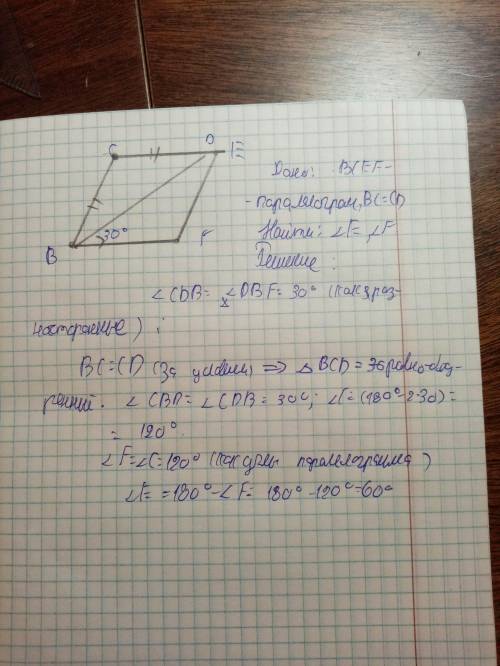 C D E
Дано: BCEF-
-параллограм, BC=CD
Найти: ∠E, ∠F
Решение:
B 30° F
∠CDB = ∠DBF = 30° (как раз-
носторонные);
BC=CD (за условием) ⇒ △ BCD =
∠CBD = ∠CDB = 30°; ∠C = (180°-2·30)=
= 120°
∠F=∠C=120° (как углы параллелограмма)
∠E = 180°-∠F= 180°-120°=60°